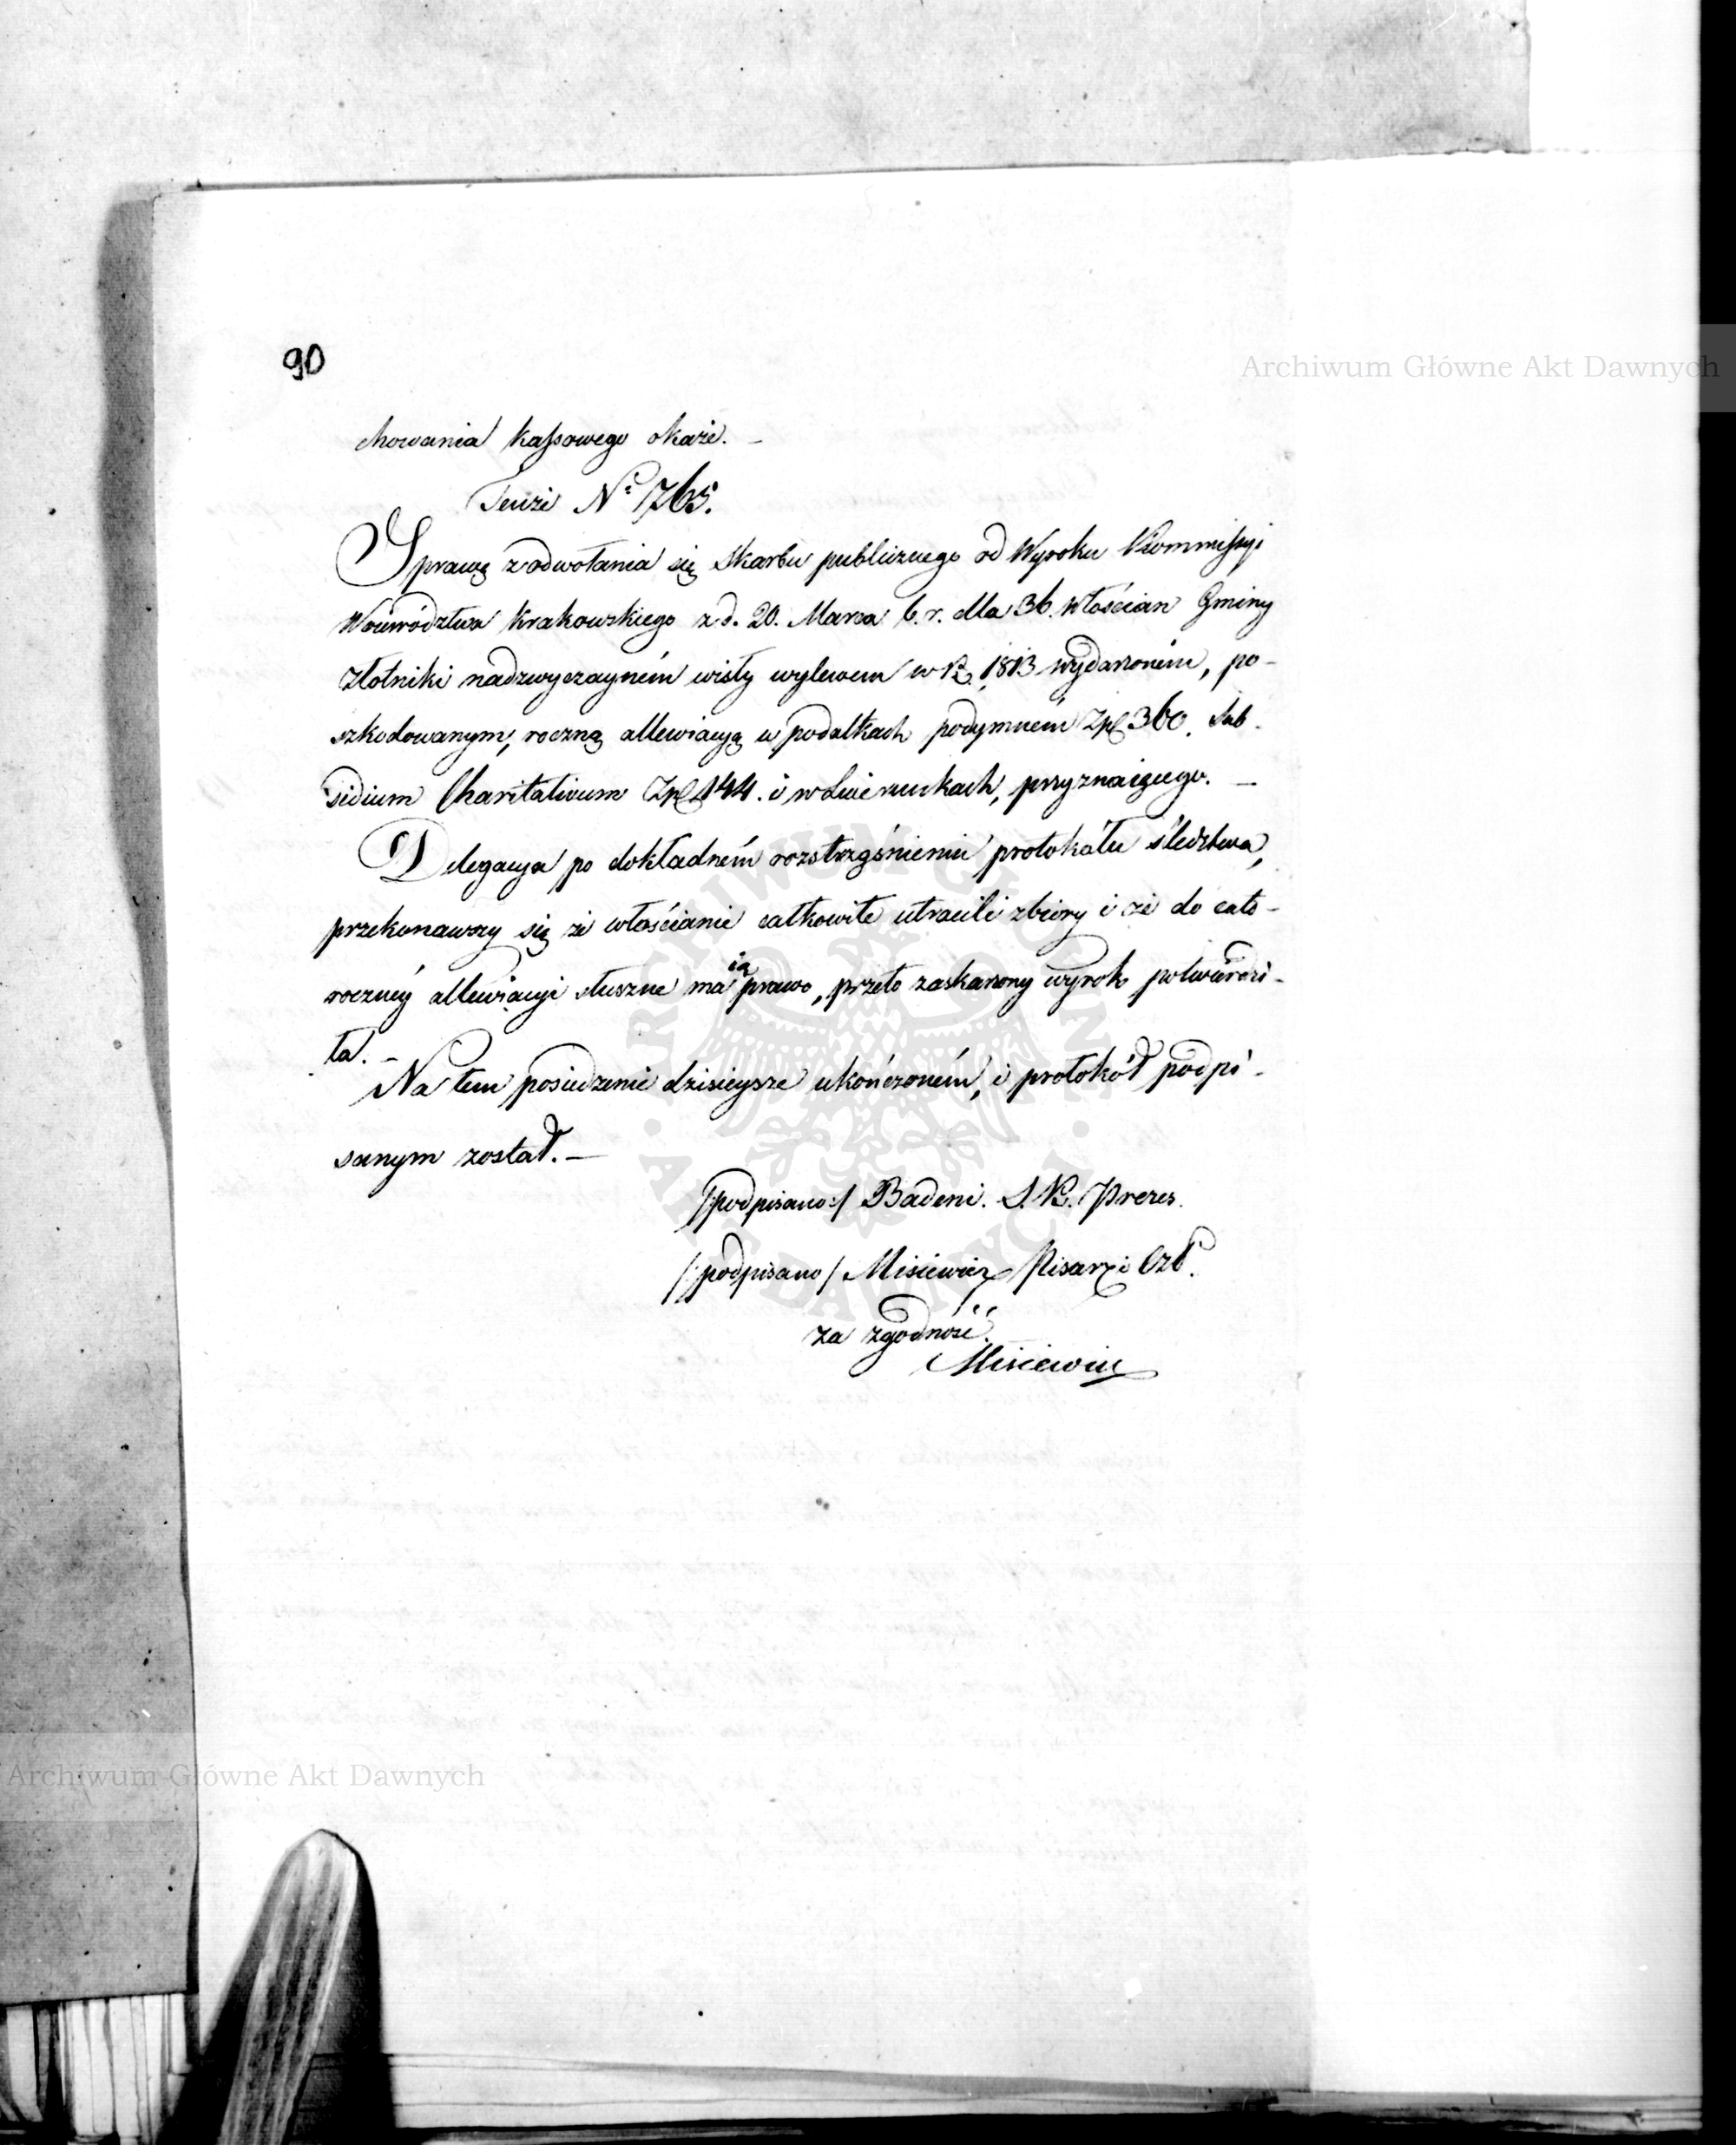 90
Archiwum Główne Akt Dawnych
chowania kassowego okaże. –
Tenże No 1765.
Sprawę z odwołania się Skarbu publicznego od Wyroku Kommissyi
Woiewództwa Krakowskiego z d. 20. Marca b. r. dla 36. włościan Gminy
Złotniki nadzwyczaynem wisły wylewem w R. 1813 wydarzonem, po-
szkodowanym, roczną allewiacyą w podatkach podymnem Zpl 360. Sub-
sidium Charitativum Zpl 144. i w Liwerunkach, przyznaiącego. –
Delegacya po dokładném rozstrząśnieniu protokółu śledztwa,
przekonawszy się że włościanie całkowite utracili zbiory i że do cało-
roczney allewiacyi słuszne maią prawo, przeto zaskarżony wyrok potwierdzi-
ła. –
Na tem posiedzenie dzisieysze ukończoném, i protokół podpi-
sanym został. –
/:podpisano:/ Badeni. S. R. Prezes.
/:podpisano/ Misiewicz Pisarz i Czł.
za zgodność.
Misiewicz
Archiwum Główne Akt Dawnych
ARCHIWUM GŁÓWNE
AKT DAWNYCH